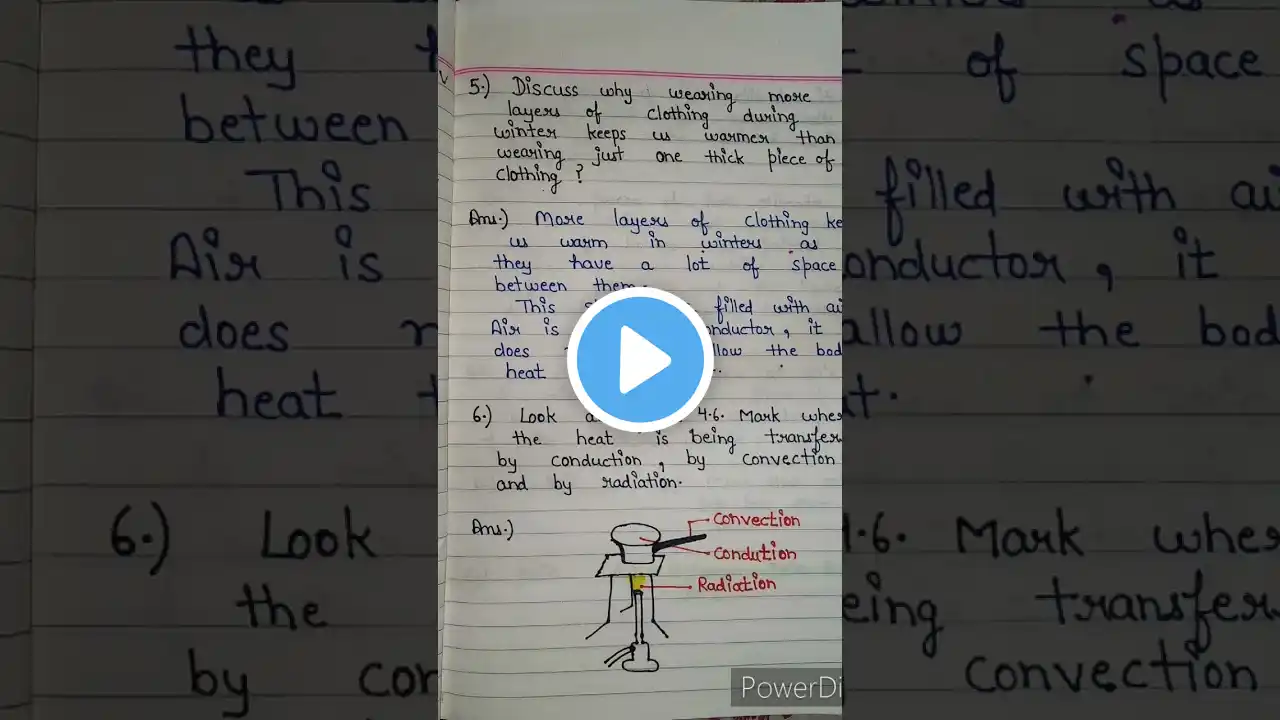 5.) Discuss why wearing more
layers of clothing during
winter keeps us warmer than
wearing just one thick piece of
clothing ?
Ans.) More layers of clothing ke
us warm in winters as
they have a lot of space
between them.
This filled with ai
Air is onductor, it
does allow the bod
heat
6.) Look 4.6. Mark wher
the heat is being transfer
by conduction, by convection
and by radiation.
Ans.)
Convection
Condution
Radiation
PowerDi